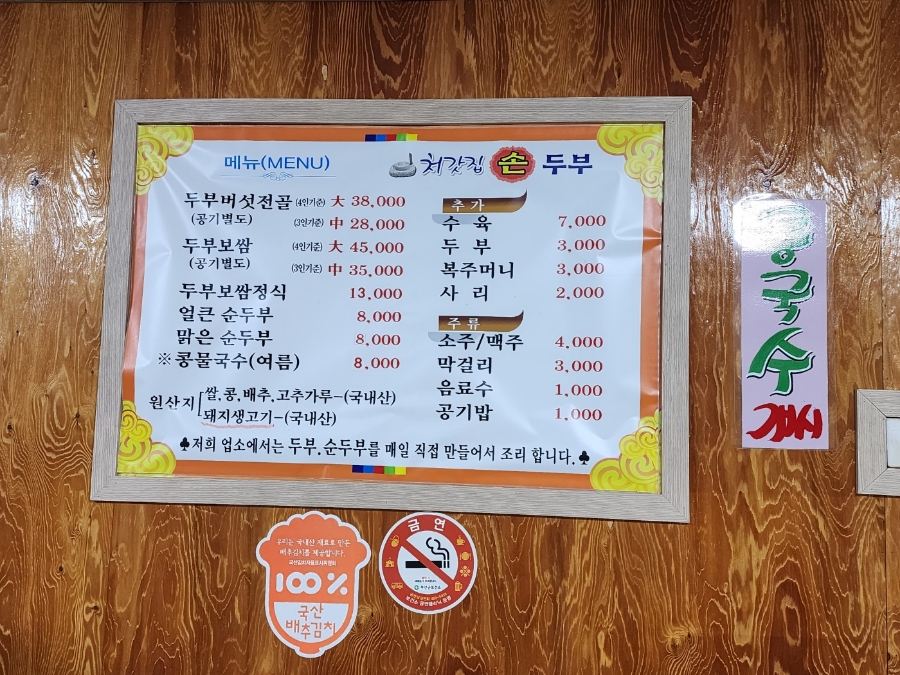 메뉴(MENU)
처갓집 손 두부
두부버섯전골 (4인기준) 大 38,000
(공기별도) (3인기준) 中 28,000
두부보쌈 (4인기준) 大 45,000
(공기별도) (3인기준) 中 35,000
두부보쌈정식 13,000
얼큰 순두부 8,000
맑은 순두부 8,000
※콩물국수(여름) 8,000
추가
수 육 7,000
두 부 3,000
복주머니 3,000
사 리 2,000
주류
소주/맥주 4,000
막걸리 3,000
음료수 1,000
공기밥 1,000
원산지 쌀,콩,배추,고추가루-(국내산)
돼지생고기-(국내산)
♣저희 업소에서는 두부,순두부를 매일 직접 만들어서 조리 합니다.♣
콩국수
개시
우리는 국내산 재료로 만든
배추김치를 제공합니다.
국산김치자율표시위원회
100%
국산
배추김치
금연